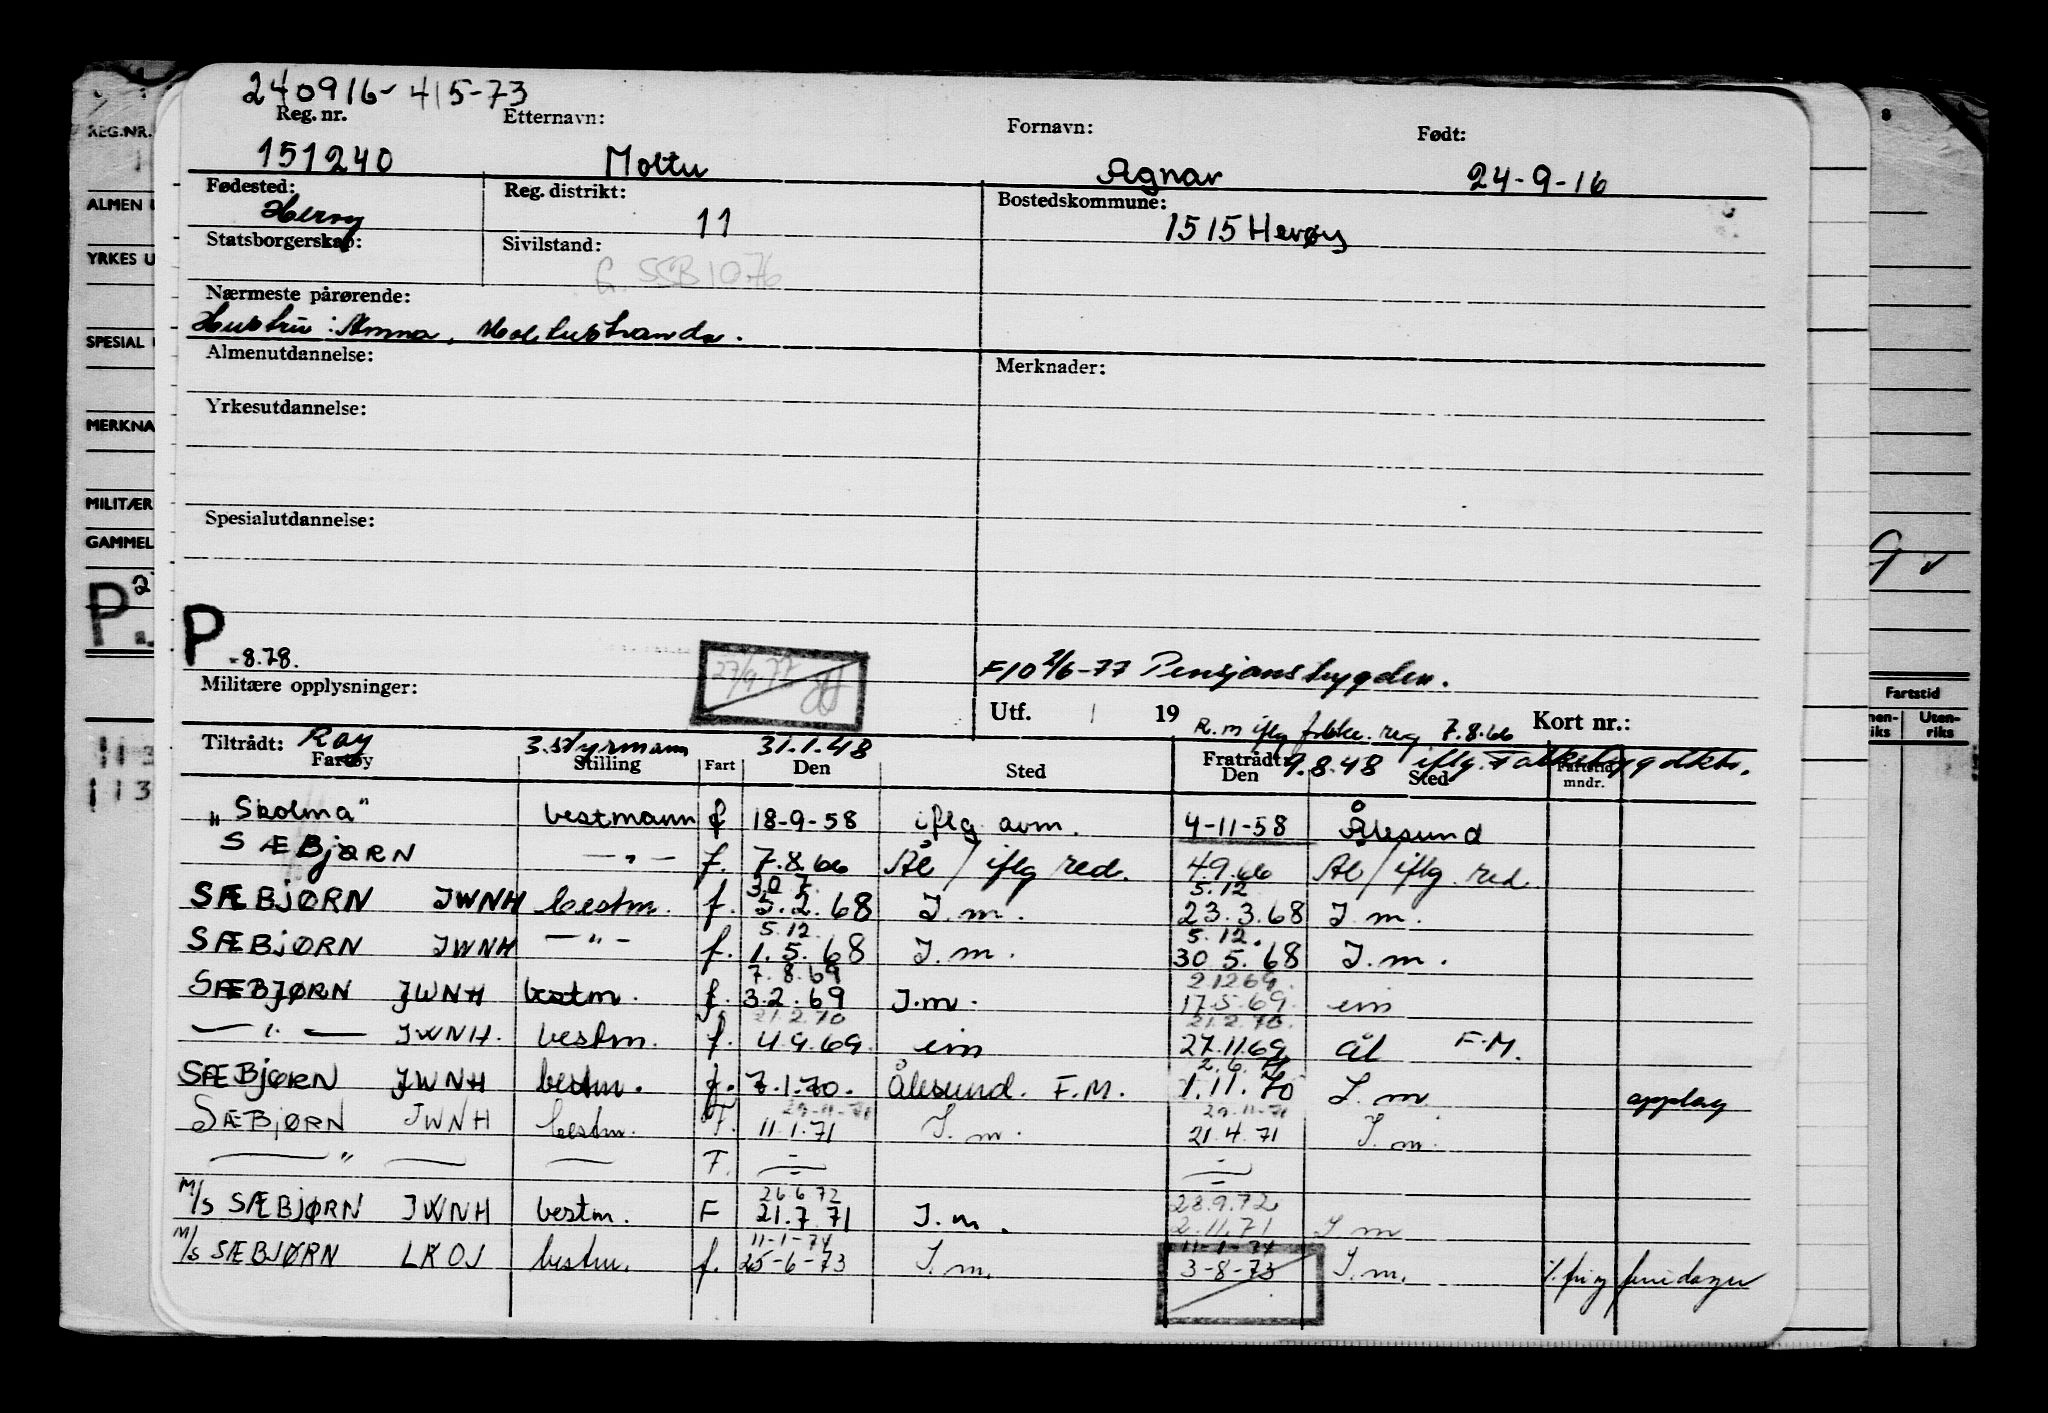 240916-41573
Reg. nr. Etternavn: Fornavn: Født:
151240 Moltu Agnar 24-9-16
Fødested: Reg. distrikt: Bostedskommune:
Herøy 11 1515 Herøy
Statsborgerskap: Sivilstand:
G. SSB 1076
Nærmeste pårørende:
Hustru: Anna, Moltustranda.
Almenutdannelse: Merknader:
Yrkesutdannelse:
Spesialutdannelse:
P -8.78.
27/9-77
F10 2/6-77 Pensjonstrygden.
Militære opplysninger: Utf. / 19 Kort nr.:
R.m iflg. reg 7.8.66
Tiltrådt: Ray 3. styrmann 31.1.48 Fratrådt: 9.8.48 iflg.
Fartøy Stilling Fart Den Sted Den Sted Fartstid mndr.
"Skolma" bestmann f 18-9-58 iflg avm. 4-11-58 Ålesund
SÆBJØRN — " — f. 7.8.66 Ål / iflg red. 4.9.66 Ål / iflg. red.
30.7. 5.12
SÆBJØRN JWNH bestm. f. 5.2.68 I.m. 23.3.68 I.m.
5.12. 5.12.
SÆBJØRN JWNH — " — f. 1.5.68 I.m. 30.5.68 I.m.
7.8.69 2.12.69.
SÆBJØRN JWNH bestm. f. 3.2.69 I.m. 17.5.69. eim
21.2.70 21.2.70.
— " — JWNH. bestm. f. 4.9.69. eim 27.11.69 ål F.M.
2.6.
SÆBJØRN JWNH bestm. f. 7.1.70. Ålesund. F.M. 1.11.70 I.m. opplag
29-11-71 29-11-71
SÆBJØRN JWNH bestm. F. 11.1.71 I.m. 21.4.71 I.m.
— " — — F. — —
26.6.72 28.9.72
M/S SÆBJØRN JWNH bestm. F 21.7.71 I.m. 2.11.71 I.m
11-1-74 11-1-74
M/S SÆBJØRN LKOJ bestm. f. 25-6-73 I.m. 3-8-73 I.m. fri og feriedager
REG.NR.
ALMEN U
YRKES U
SPESIAL
MERKNA
MILITÆR
GAMMEL
P. 2
113
113
8
Fartstid
Uten-
riks